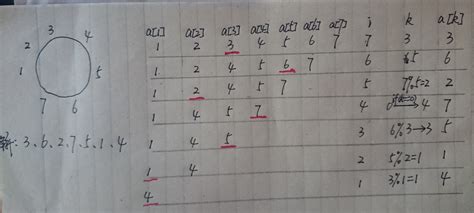 a[1] a[2] a[3] a[4] a[5] a[6] a[7] i k a[k]
1 2 3 4 5 6 7 7 3 3
1 2 4 5 6 7 6 5
1 2 4 5 7 5 7%5=2 2
1 4 5 7 4 4 7
1 4 5 3 6%3→3 5
1 4 2 5%2=1 1
4 1 3%1=1 4
3
2 4
1 5
7 6
:3、6、2、7、5、1、4